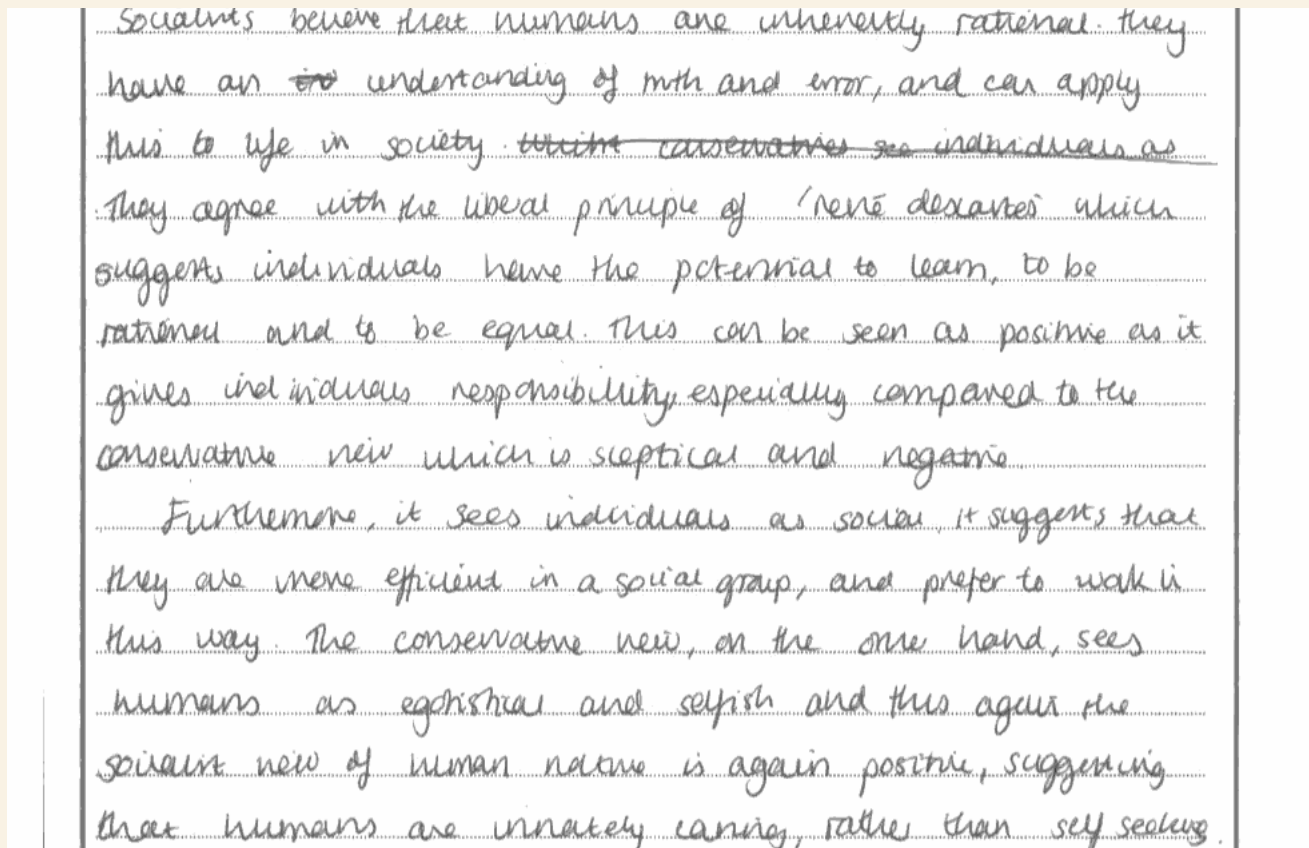 Socialists believe that humans are inherently rational. they
have an understanding of truth and error, and can apply
this to life in society. Whilst conservatives see individuals as
They agree with the liberal principle of 'renē descartes' which
suggests individuals have the potential to learn, to be
rational and to be equal. This can be seen as positive as it
gives individuals responsibility, especially compared to the
conservative view which is sceptical and negative.
Furthermore, it sees individuals as social, it suggests that
they are more efficient in a social group, and prefer to work in
this way. The conservative view, on the one hand, sees
humans as egotistical and selfish and thus again the
socialist view of human nature is again positive, suggesting
that humans are innately caring, rather than self seeking.